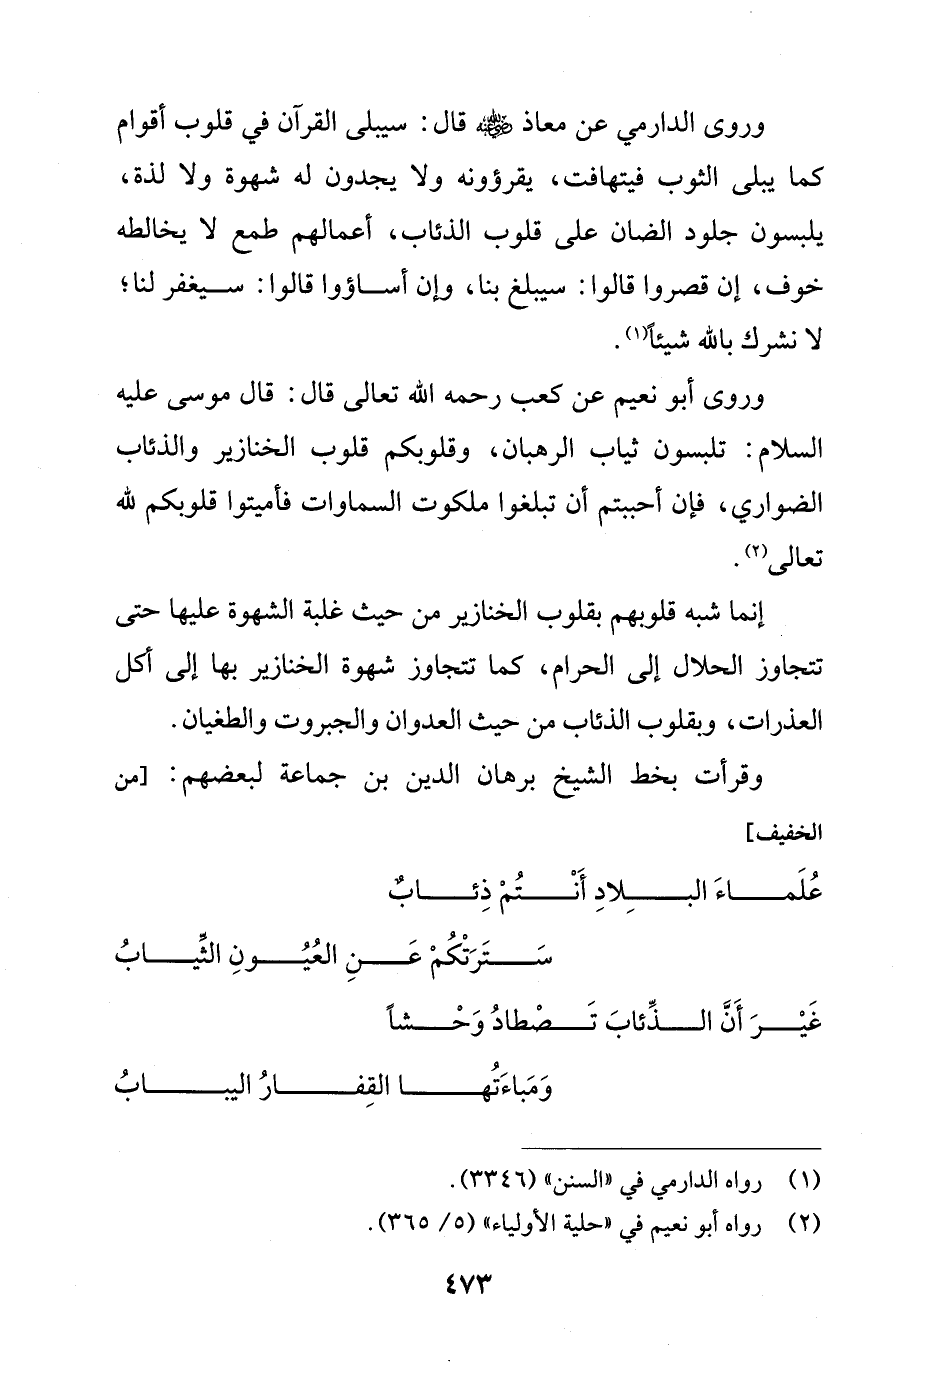 وروى الدارمي عن معاذ رضي الله عنه قال: سيبلى القرآن في قلوب أقوام
كما يبلى الثوب فيتهافت، يقرؤونه ولا يجدون له شهوة ولا لذة،
يلبسون جلود الضان على قلوب الذئاب، أعمالهم طمع لا يخالطه
خوف، إن قصروا قالوا: سيبلغ بنا، وإن أساؤوا قالوا: سيغفر لنا؛
لا نشرك بالله شيئاً(١).
وروى أبو نعيم عن كعب رحمه الله تعالى قال: قال موسى عليه
السلام: تلبسون ثياب الرهبان، وقلوبكم قلوب الخنازير والذئاب
الضواري، فإن أحببتم أن تبلغوا ملكوت السماوات فأميتوا قلوبكم لله
تعالى(٢).
إنما شبه قلوبهم بقلوب الخنازير من حيث غلبة الشهوة عليها حتى
تتجاوز الحلال إلى الحرام، كما تتجاوز شهوة الخنازير بها إلى أكل
العذرات، وبقلوب الذئاب من حيث العدوان والجبروت والطغيان.
وقرأت بخط الشيخ برهان الدين بن جماعة لبعضهم: [من
الخفيف]
عُلَمـاءَ البـلادِ أَنْـتُمْ ذِئـابٌ
سَـتَرَتْكُمْ عَـنِ العُيُـونِ الثِّيـابُ
غَيْـرَ أَنَّ الـذِّئابَ تَـصْطادُ وَحْـشاً
وَمَباءَتُهـا القِفـارُ اليبـابُ
(١) رواه الدارمي في «السنن» (٣٣٤٦).
(٢) رواه أبو نعيم في «حلية الأولياء» (٥/ ٣٦٥).
٤٧٣